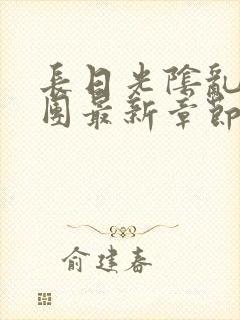 長日光陰亂
團最新章節
俞建春